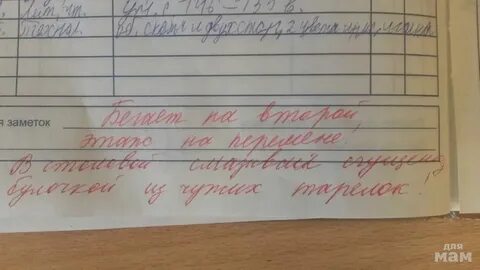 Лит. чт. уч. с 146 – 155 в.
Технол. цв. скотч и двухстор, 2 цвета
я заметок
Бегает на второй
этаж на перемене!
В столовой смазывает сгущенку
булочкой из чужих тарелок!
для
мам